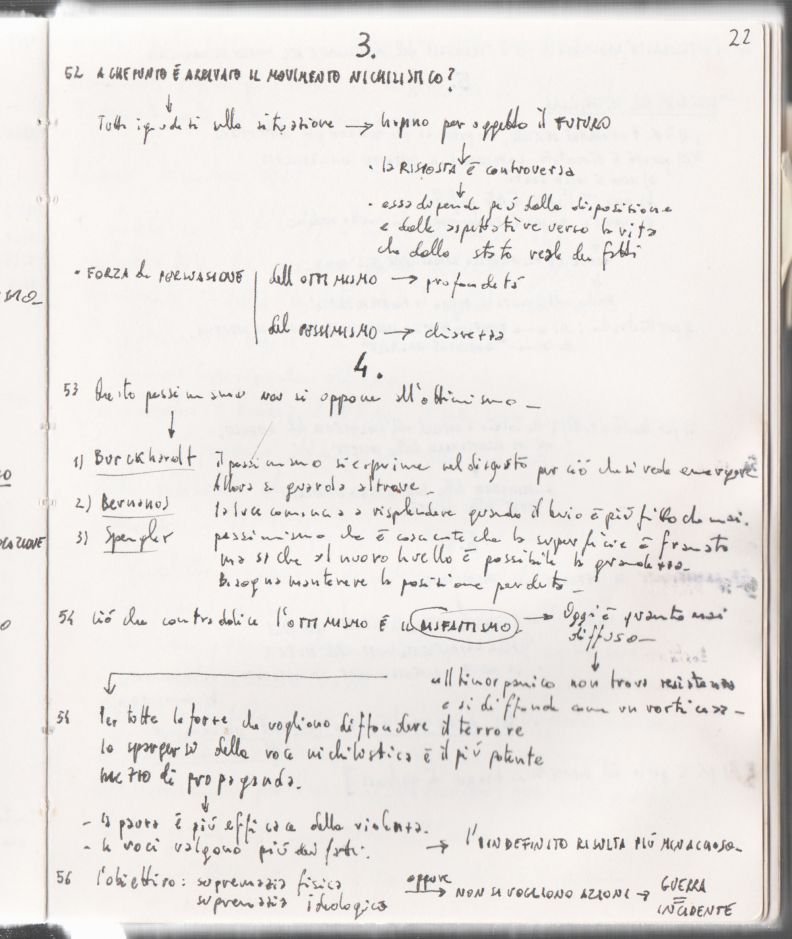 22
3.
52 A CHE PUNTO È ARRIVATO IL MOVIMENTO NICHILISTICO?
Tutti i quesiti sulla situazione → hanno per oggetto il FUTURO
· la RISPOSTA è controversa
· essa dipende più dalla disposizione
e dalle aspettative verso la vita
che dallo stato reale dei fatti
· FORZA di PERSUASIONE
dell'OTTIMISMO → profondità
del PESSIMISMO → chiarezza
4.
53 Questo pessimismo non si oppone all'ottimismo _
1) Burckhardt il pessimismo si esprime nel disgusto per ciò che si vede emergere
Allora si guarda altrove _
2) Bernanos la luce comincia a risplendere quando il buio è più fitto che mai.
3) Spengler pessimismo che è cosciente che la superficie è franata
ma sa che al nuovo livello è possibile la grandezza.
Bisogna mantenere la posizione perduta _
54 Ciò che contraddice l'OTTIMISMO È il DISFATTISMO → Oggi è quanto mai
diffuso _
non trova resistenza
e si diffonde come un vortice _
54 Per tutte le forze che vogliono diffondere il terrore
lo spargersi della voce nichilistica è il più potente
mezzo di propaganda.
- la paura è più efficace della violenza.
- le voci valgono più dei fatti. → l'INDEFINITO RISULTA PIÙ MINACCIOSO _
56 l'obiettivo: supremazia fisica oppure → NON SI VOGLIONO AZIONI → GUERRA
supremazia ideologica = INCIDENTE